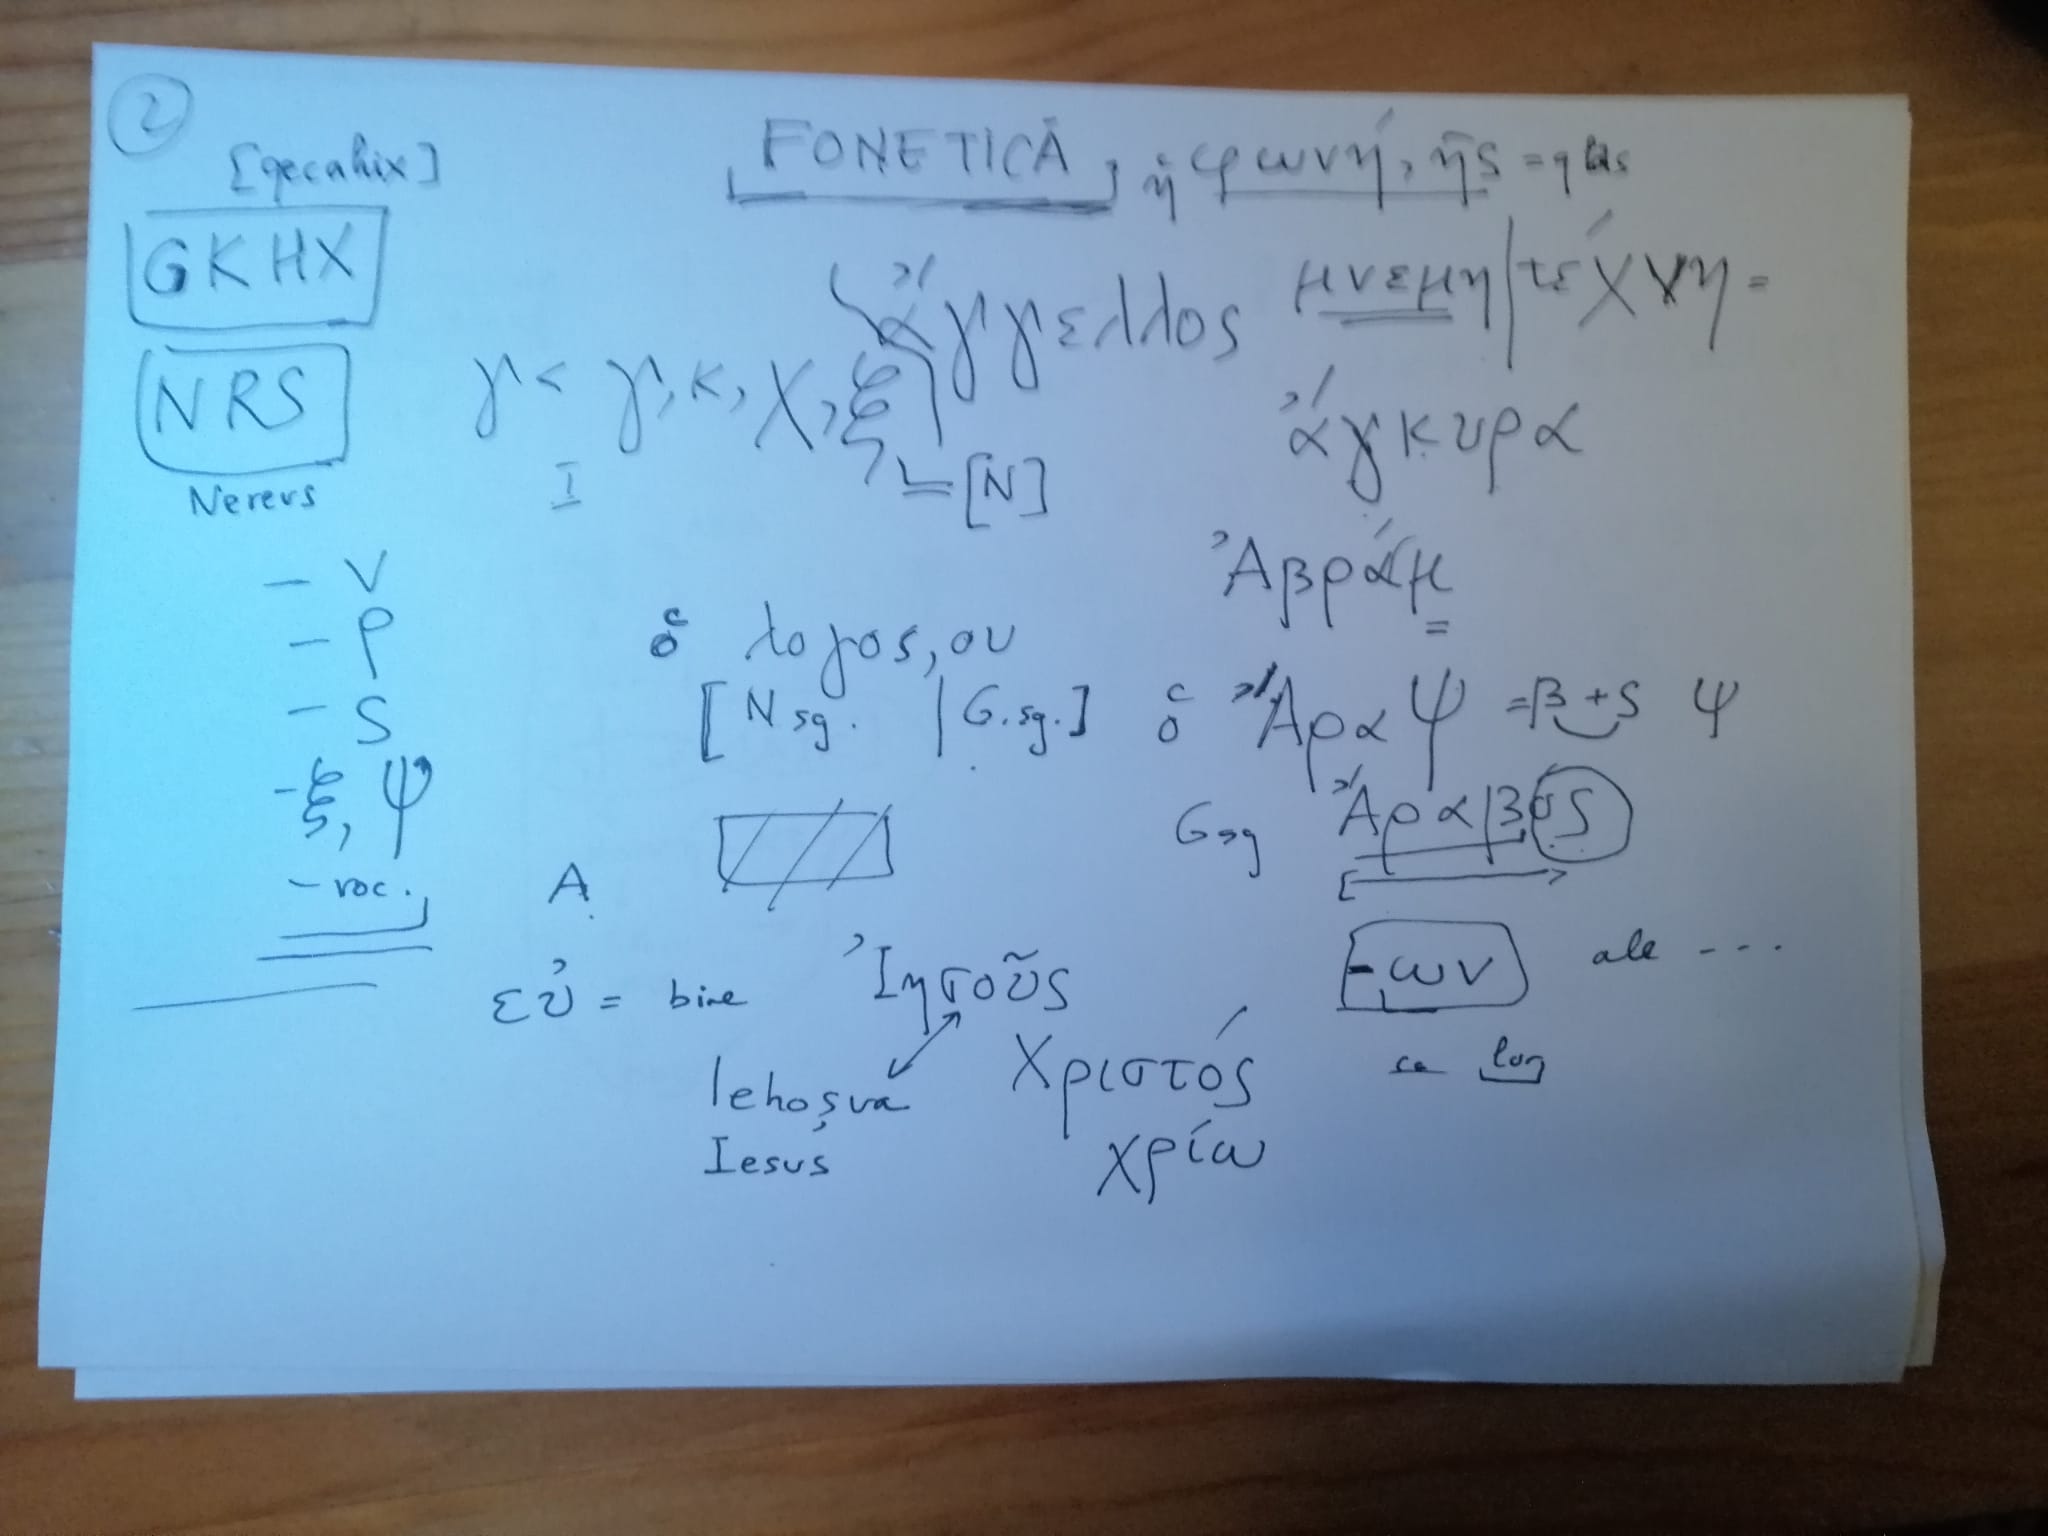 2
[gecahix]
FONETICĂ, ἡ φωνή, ῆς =
GKHX
ἄγγελλος μνεμη/τέχνη =
NRS
γ < γ, κ, χ, ξ
ἄγκυρα
Nereus
I
= [N]
Ἀβράμ
- ν
- ρ
ὁ λογος, ου
- ς
[N sg. | G. sg.]
ὁ Ἄραψ = β + ς ψ
- ξ, ψ
G sg Ἄραβος
- voc.
A
-ων ale ...
εὐ = bine
Ἰησοῦς
Iehoșua
Χριστός
Iesus
χρίω